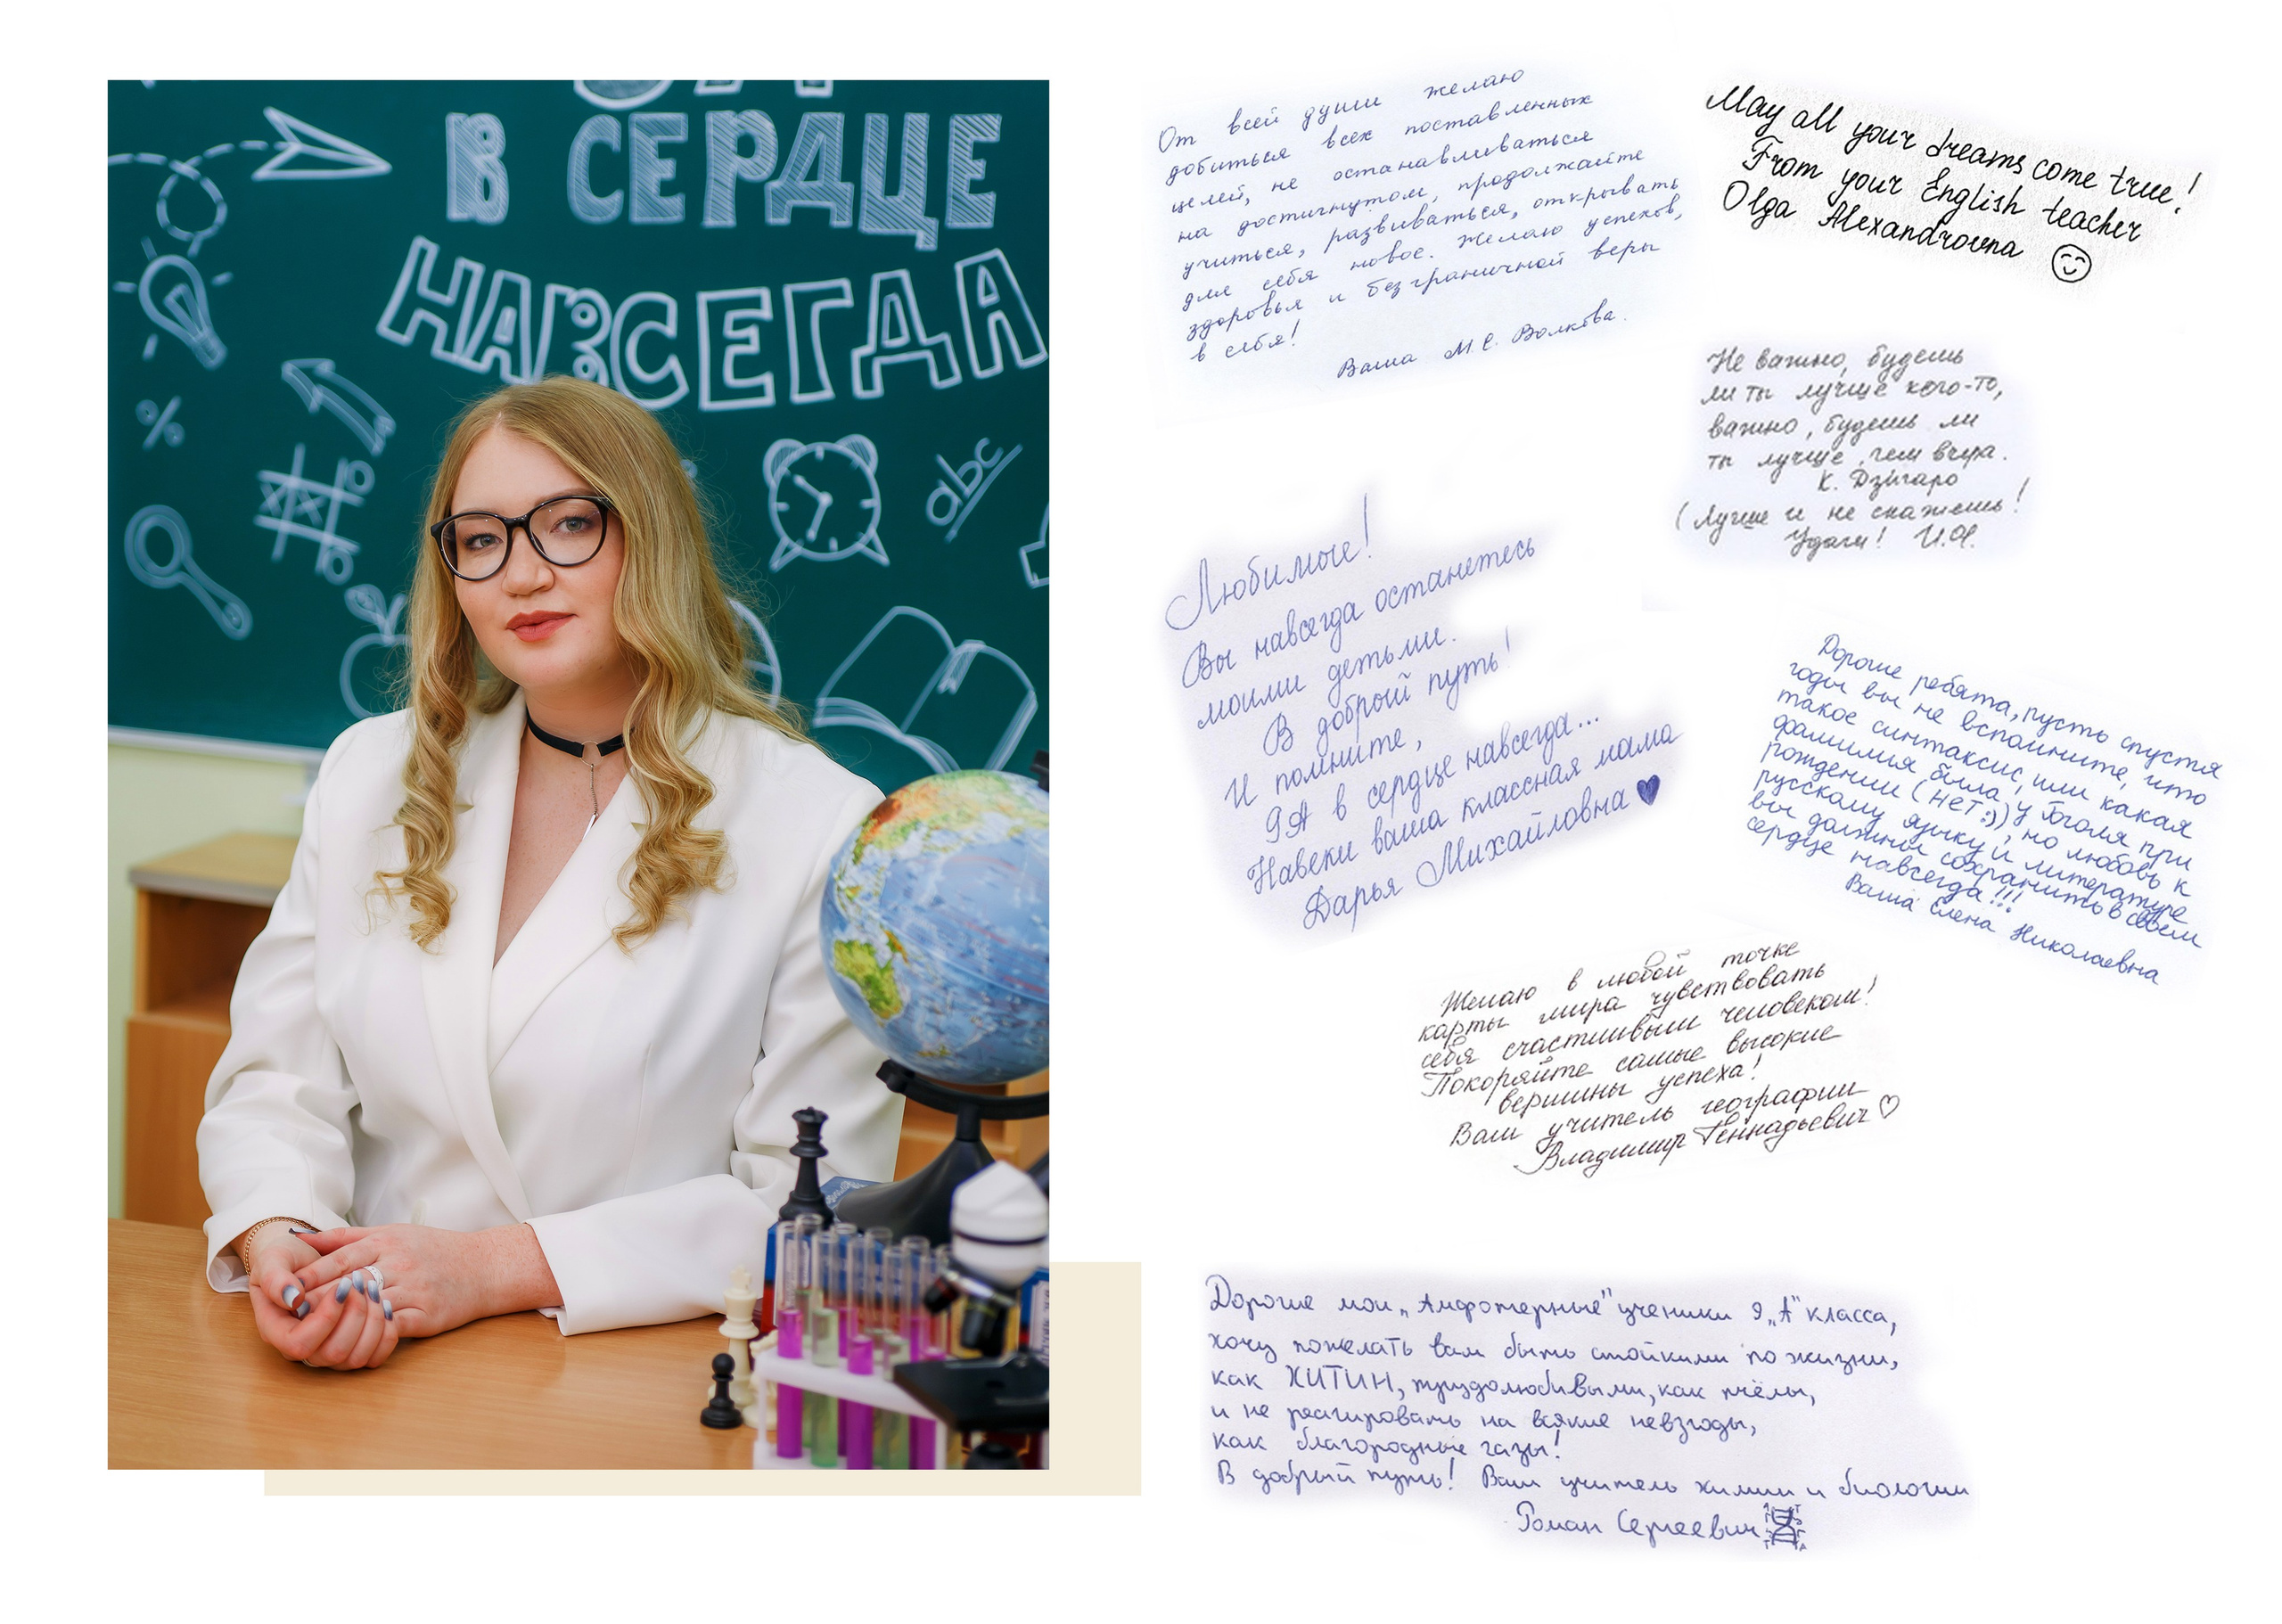 В СЕРДЦЕ
НАВСЕГДА
%
abc
От всей души желаю
добиться всех поставленных
целей, не останавливаться
на достигнутом, продолжайте
учиться, развиваться, открывать
для себя новое. Желаю успехов,
здоровья и безграничной веры
в себя!
Ваша М.С. Волкова.
May all your dreams come true!
From your English teacher
Olga Alexandrovna
Не важно, будешь
ли ты лучше кого-то,
важно, будешь ли
ты лучше, чем вчера.
К. Дзигаро
(Лучше и не скажешь!
Удачи! И.Я.
Любимые!
Вы навсегда останетесь
моими детьми.
В добрый путь!
И помните,
9А в сердце навсегда...
Навеки ваша классная мама
Дарья Михайловна
Дорогие ребята, пусть спустя
годы вы не вспомните, что
такое синтаксис, или какая
фамилия была у Гоголя при
рождении (НЕТ:)), но любовь к
русскому языку и литературе
вы должны сохранить в своём
сердце навсегда!!!
Ваша Елена Николаевна
Желаю в любой точке
карты мира чувствовать
себя счастливым человеком!
Покоряйте самые высокие
вершины успеха!
Ваш учитель географии
Владимир Геннадьевич
Дорогие мои „Амфотерные" ученики 9 „А" класса,
хочу пожелать вам быть стойкими по жизни,
как ХИТИН, трудолюбивыми, как пчёлы,
и не реагировать на всякие невзгоды,
как благородные газы!
В добрый путь! Ваш учитель химии и биологии
Роман Сергеевич